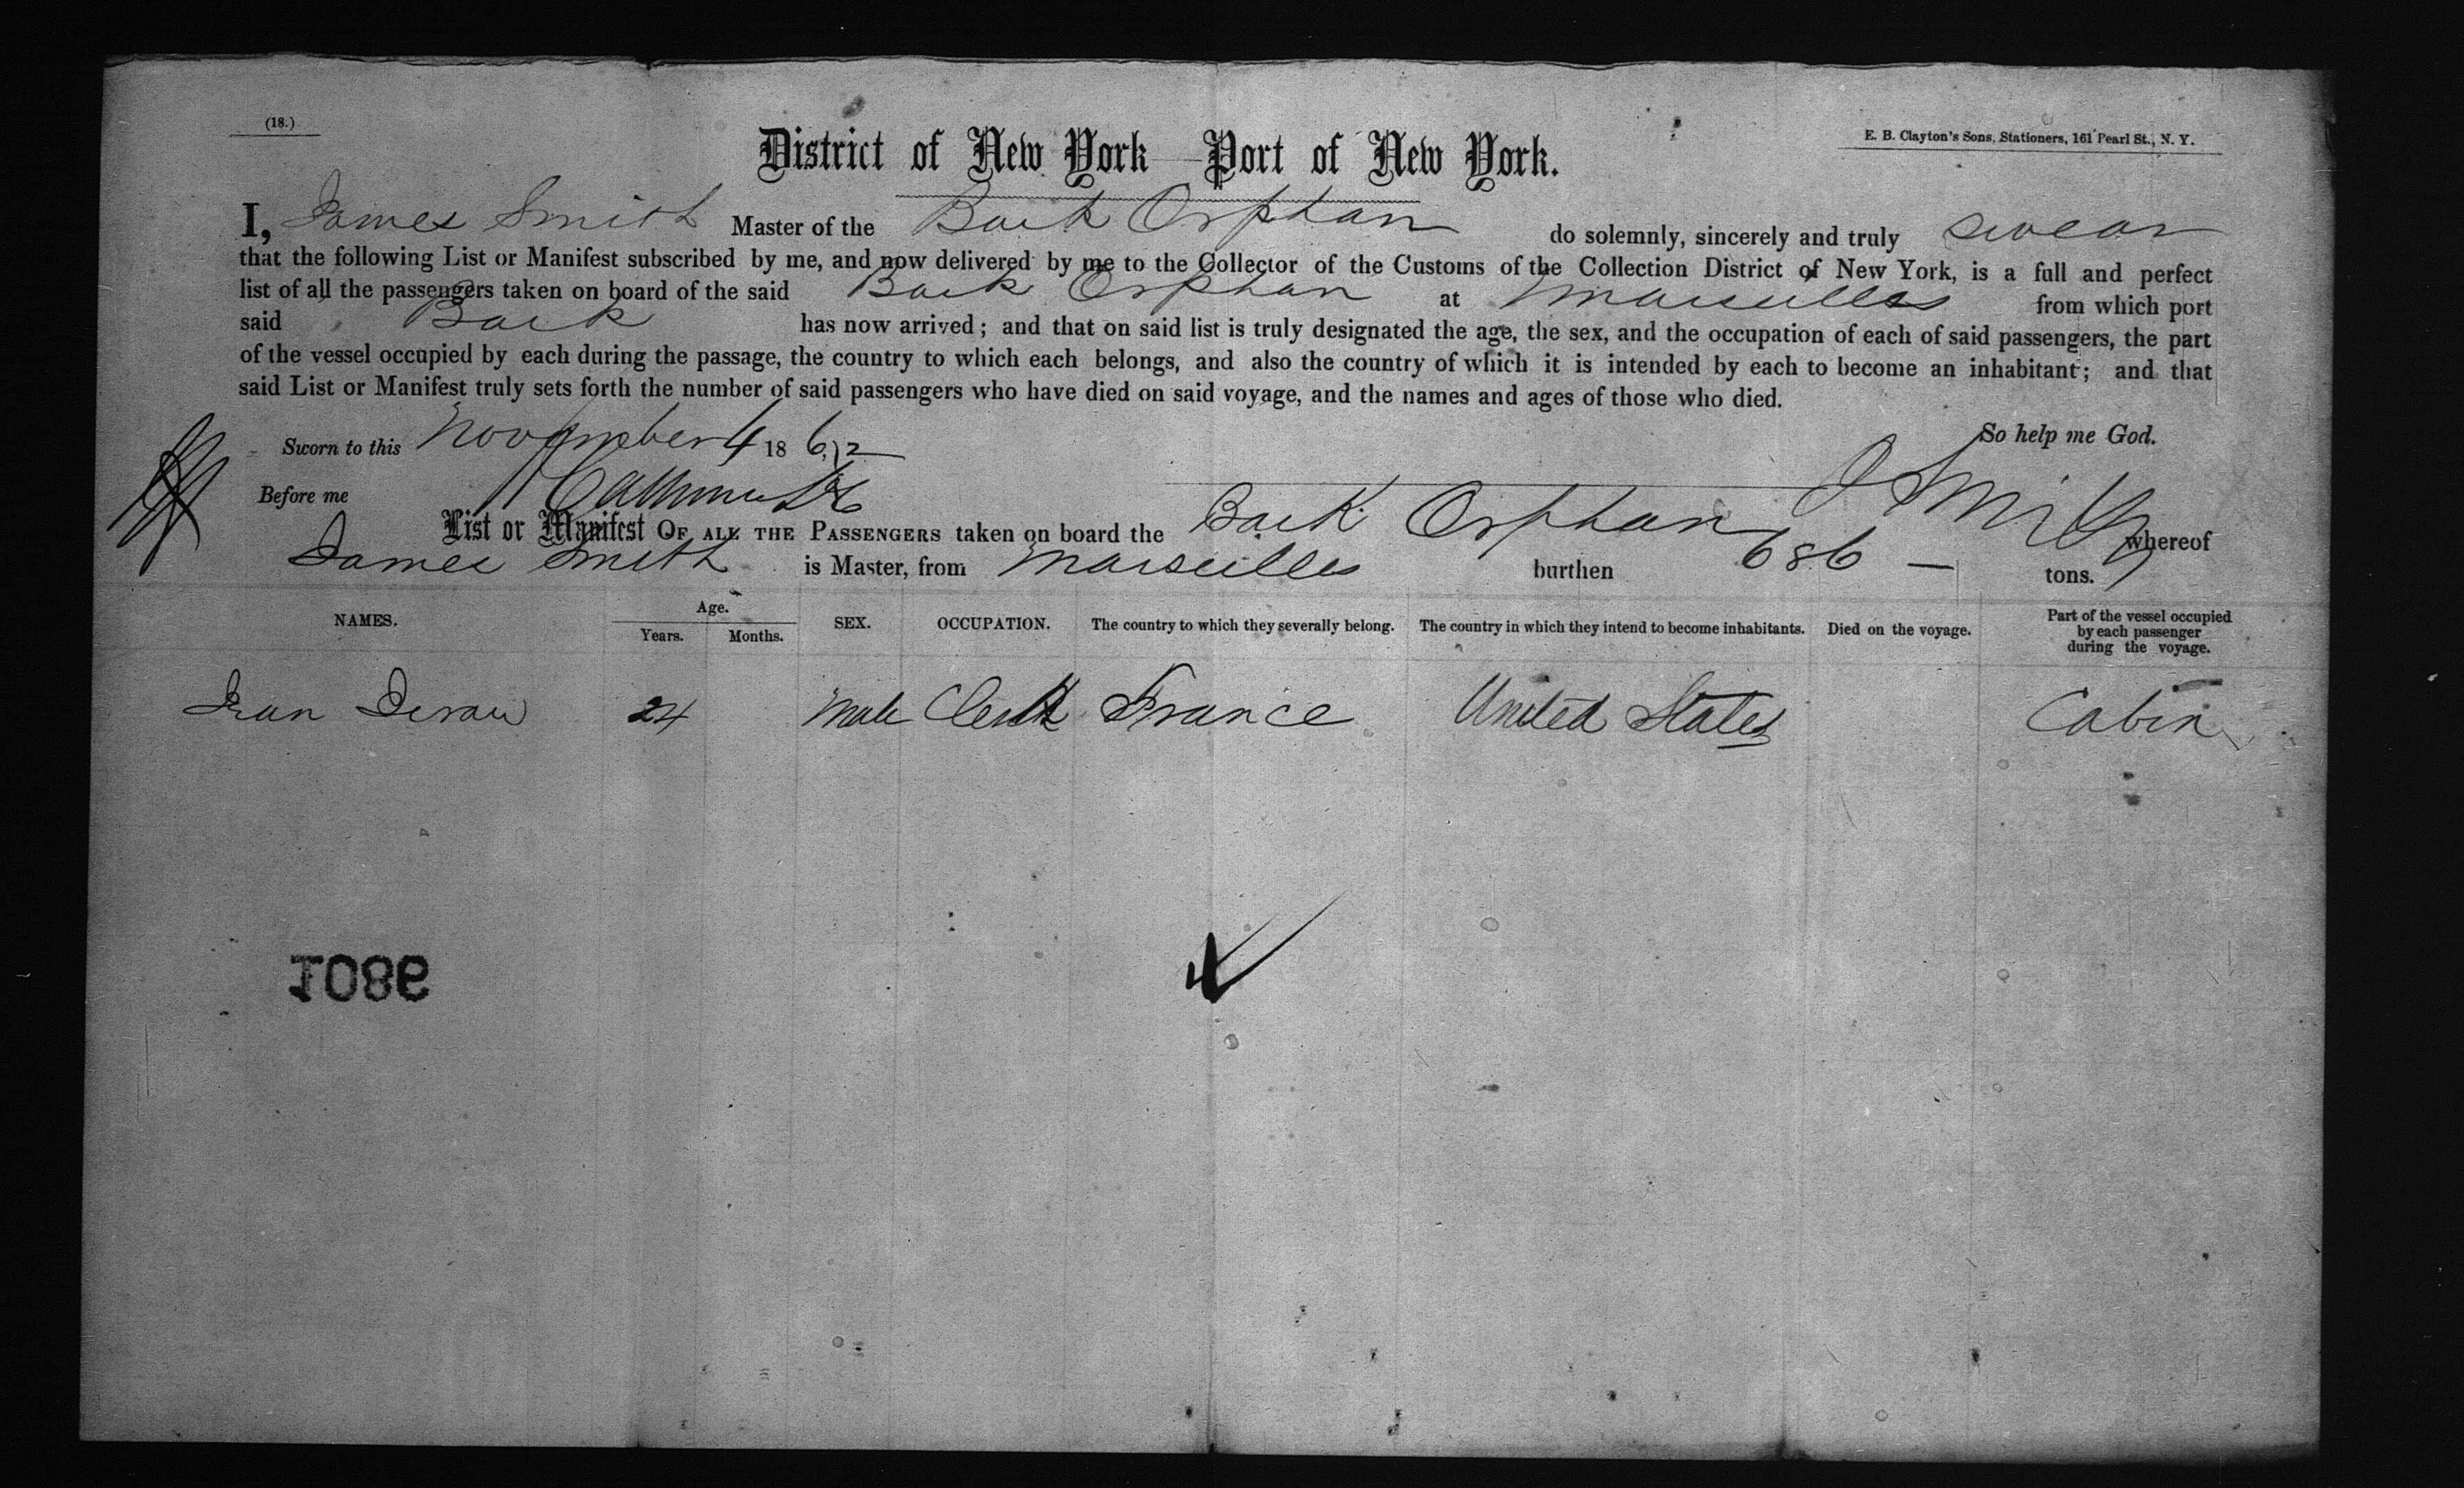 (18.)
E. B. Clayton's Sons, Stationers, 161 Pearl St., N. Y.
District of New York—Port of New York.
I, James Smith Master of the Bark Orphan do solemnly, sincerely and truly swear
that the following List or Manifest subscribed by me, and now delivered by me to the Collector of the Customs of the Collection District of New York, is a full and perfect
list of all the passengers taken on board of the said Bark Orphan at Marseilles from which port
said Bark has now arrived; and that on said list is truly designated the age, the sex, and the occupation of each of said passengers, the part
of the vessel occupied by each during the passage, the country to which each belongs, and also the country of which it is intended by each to become an inhabitant; and that
said List or Manifest truly sets forth the number of said passengers who have died on said voyage, and the names and ages of those who died.
Sworn to this November 4 1862 So help me God.
Before me J Smith
List or Manifest OF ALL THE PASSENGERS taken on board the Bark Orphan whereof
James Smith is Master, from Marseilles burthen 686 — tons.
NAMES. Age. Years. Months. SEX. OCCUPATION. The country to which they severally belong. The country in which they intend to become inhabitants. Died on the voyage. Part of the vessel occupied by each passenger during the voyage.
Jean 24 Male Clerk France United States Cabin
1086